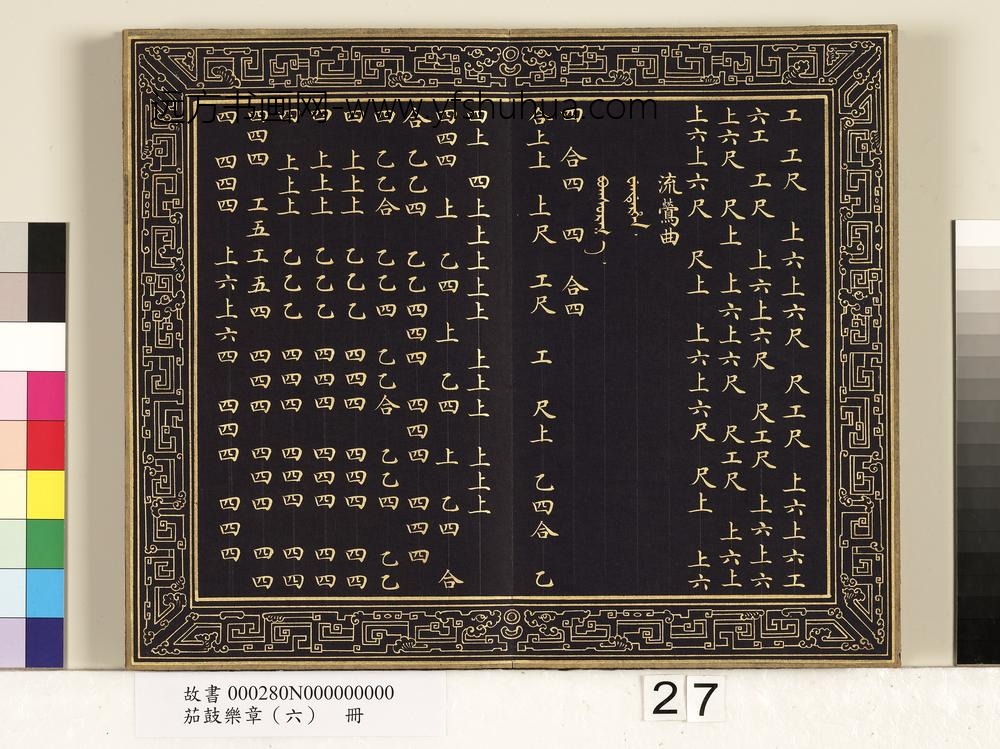 工 工尺 上六上六尺 尺工尺 上六上六工
六工 工尺 上六上六尺 尺工尺 上六上六
上六尺 尺上 上六上六尺 尺工尺 上六上
上六上六尺 尺上 上六上六尺 尺上 上六
流鶯曲
四 合四 四 合四
合上上 上尺 工尺 工 尺上 乙四合 乙
四上 四上上上上上 上上上 上上上
合四四 上 乙四 上 乙四 上 乙四 合
合 乙乙四 乙乙四四四 四四四 四四四
四 乙乙合 乙乙四 乙乙合 乙乙四 乙乙
四 上上上 乙乙乙 四四四 四四四 四四
四 上上上 乙乙乙 四四四 四四四 四四
四 上上上 乙乙乙 四四四 四四四 四四
四四四 工五工五四 四四四 四四四 四四
四 四四四 上六上六四 四四四 四四四
远方书画网-www.yfshuhua.com
故書 000280N000000000
茄鼓樂章（六） 冊
27